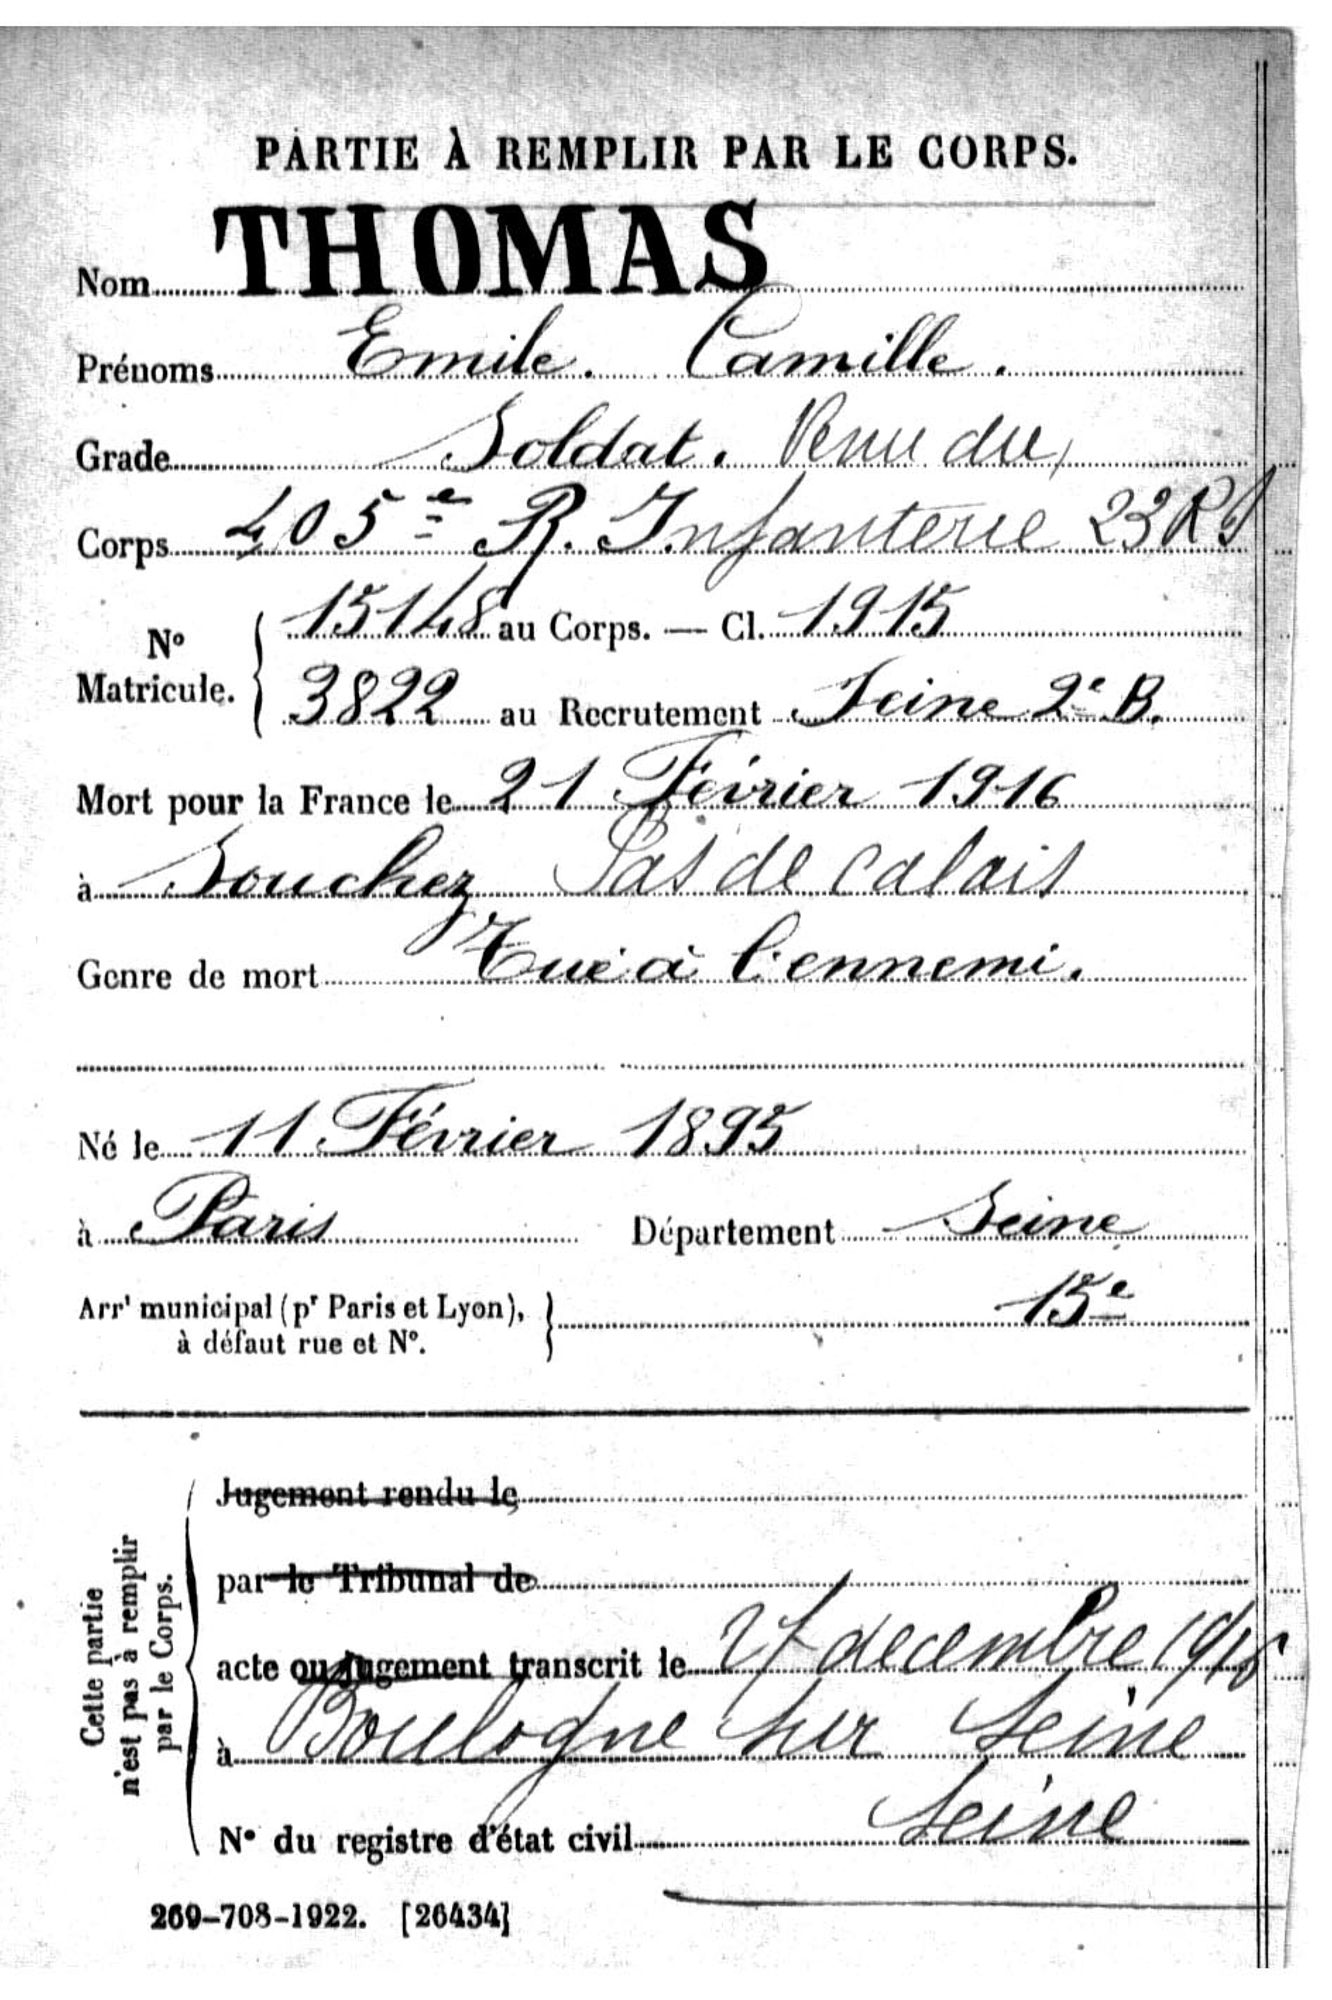 PARTIE À REMPLIR PAR LE CORPS.
Nom THOMAS
Prénoms Emile. Camille.
Grade Soldat. Venu du
Corps 405e R. Infanterie 23 R
No Matricule. { 15148 au Corps. — Cl. 1915
3822 au Recrutement Seine 2e B.
Mort pour la France le 21 Février 1916
à Souchez Pas de Calais
Genre de mort Tué à l'ennemi.
Né le 11 Février 1895
à Paris Département Seine
Arrt municipal (pr Paris et Lyon), à défaut rue et No. } 15e
Cette partie n'est pas à remplir par le Corps.
Jugement rendu le
par le Tribunal de
acte ou jugement transcrit le decembre
à Boulogne sur Seine
Seine
No du registre d'état civil
269-708-1922. [26434]